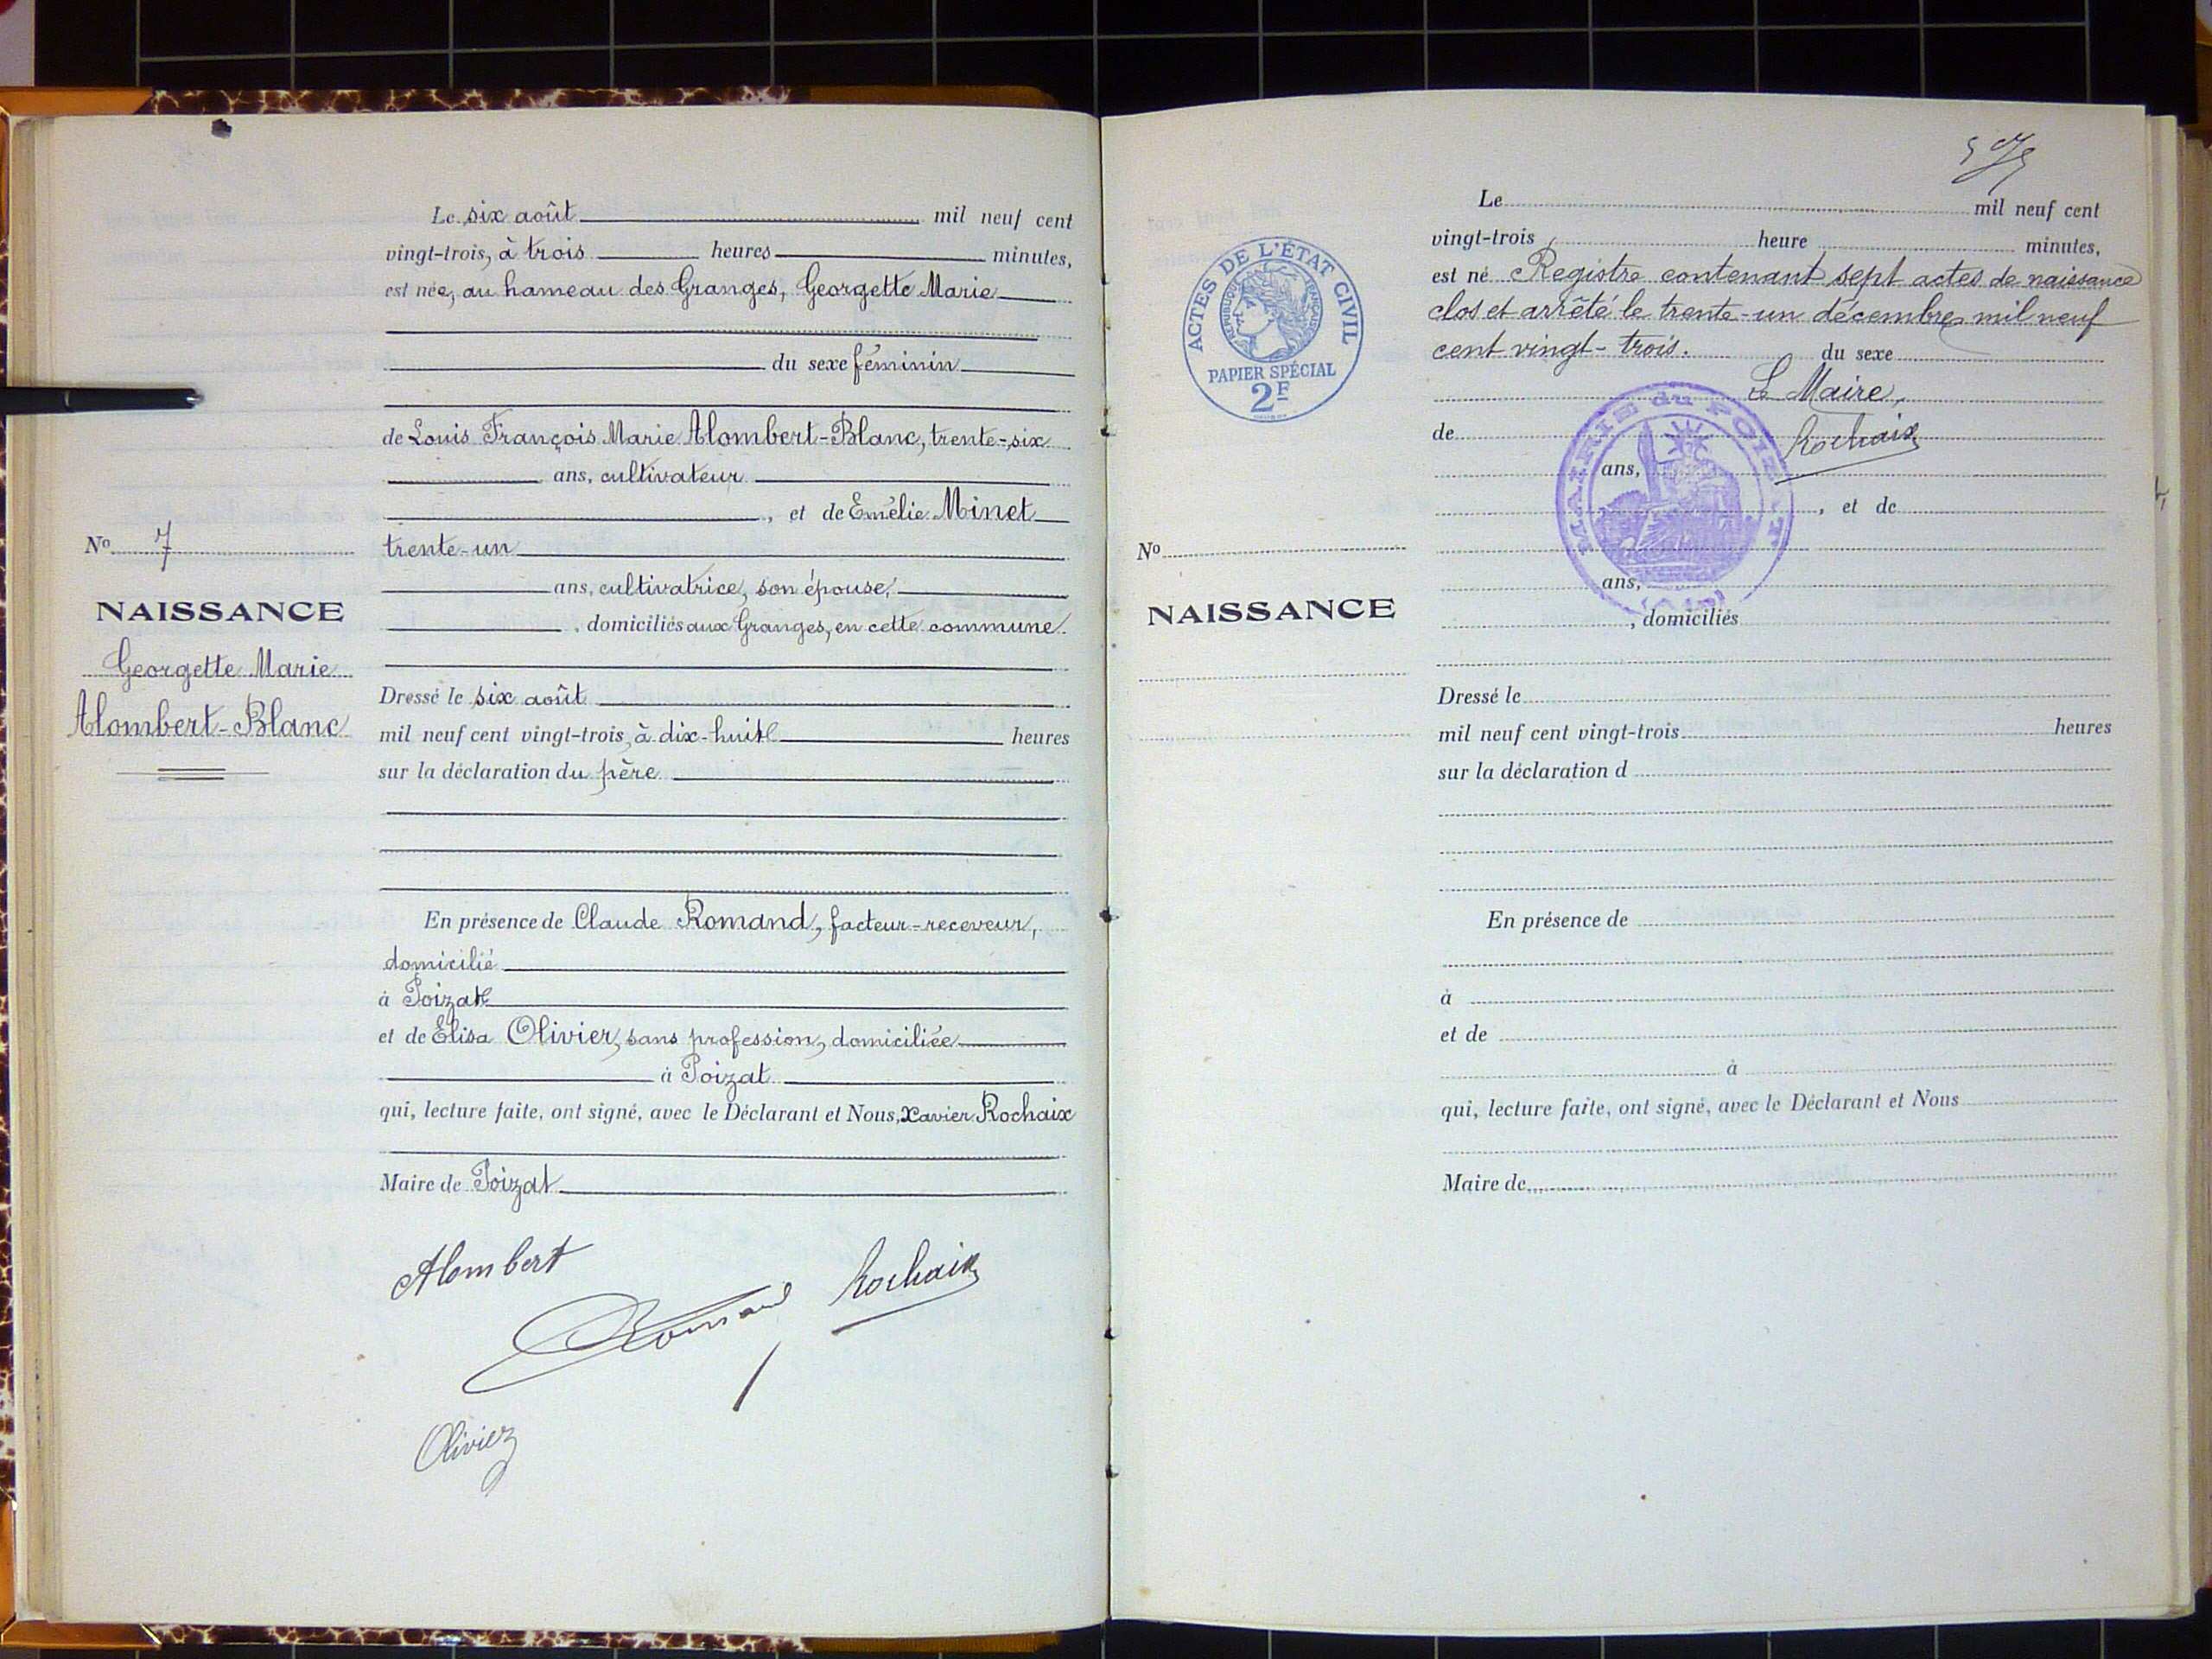 Le six août mil neuf cent
vingt-trois, à trois heures minutes,
est née, au hameau des Granges, Georgette Marie
du sexe féminin
de Louis François Marie Alombert-Blanc, trente-six
ans, cultivateur
, et de Emélie Minet
trente-un
ans, cultivatrice, son épouse,
, domiciliés aux Granges, en cette commune.
Dressé le six août
mil neuf cent vingt-trois, à dix-huit heures
sur la déclaration du père
En présence de Claude Romand, facteur-receveur,
domicilié
à Poizat
et de Elisa Olivier, sans profession, domiciliée
à Poizat
qui, lecture faite, ont signé, avec le Déclarant et Nous, Xavier Rochaix
Maire de Poizat
No 7
NAISSANCE
Georgette Marie
Alombert-Blanc
Alombert
Romand
Rochaix
Olivier
ACTES DE L'ÉTAT CIVIL
RÉPUBLIQUE FRANÇAISE
PAPIER SPÉCIAL
2F
No
NAISSANCE
Le mil neuf cent
vingt-trois , heure minutes,
est né Registre contenant sept actes de naissance
clos et arrêté le trente-un décembre mil neuf
cent vingt-trois. du sexe
Le Maire,
de Rochaix
ans,
, et de
ans,
, domiciliés
MAIRIE du POIZAT
(AIN)
Dressé le
mil neuf cent vingt-trois heures
sur la déclaration d
En présence de
à
et de
à
qui, lecture faite, ont signé, avec le Déclarant et Nous
Maire de